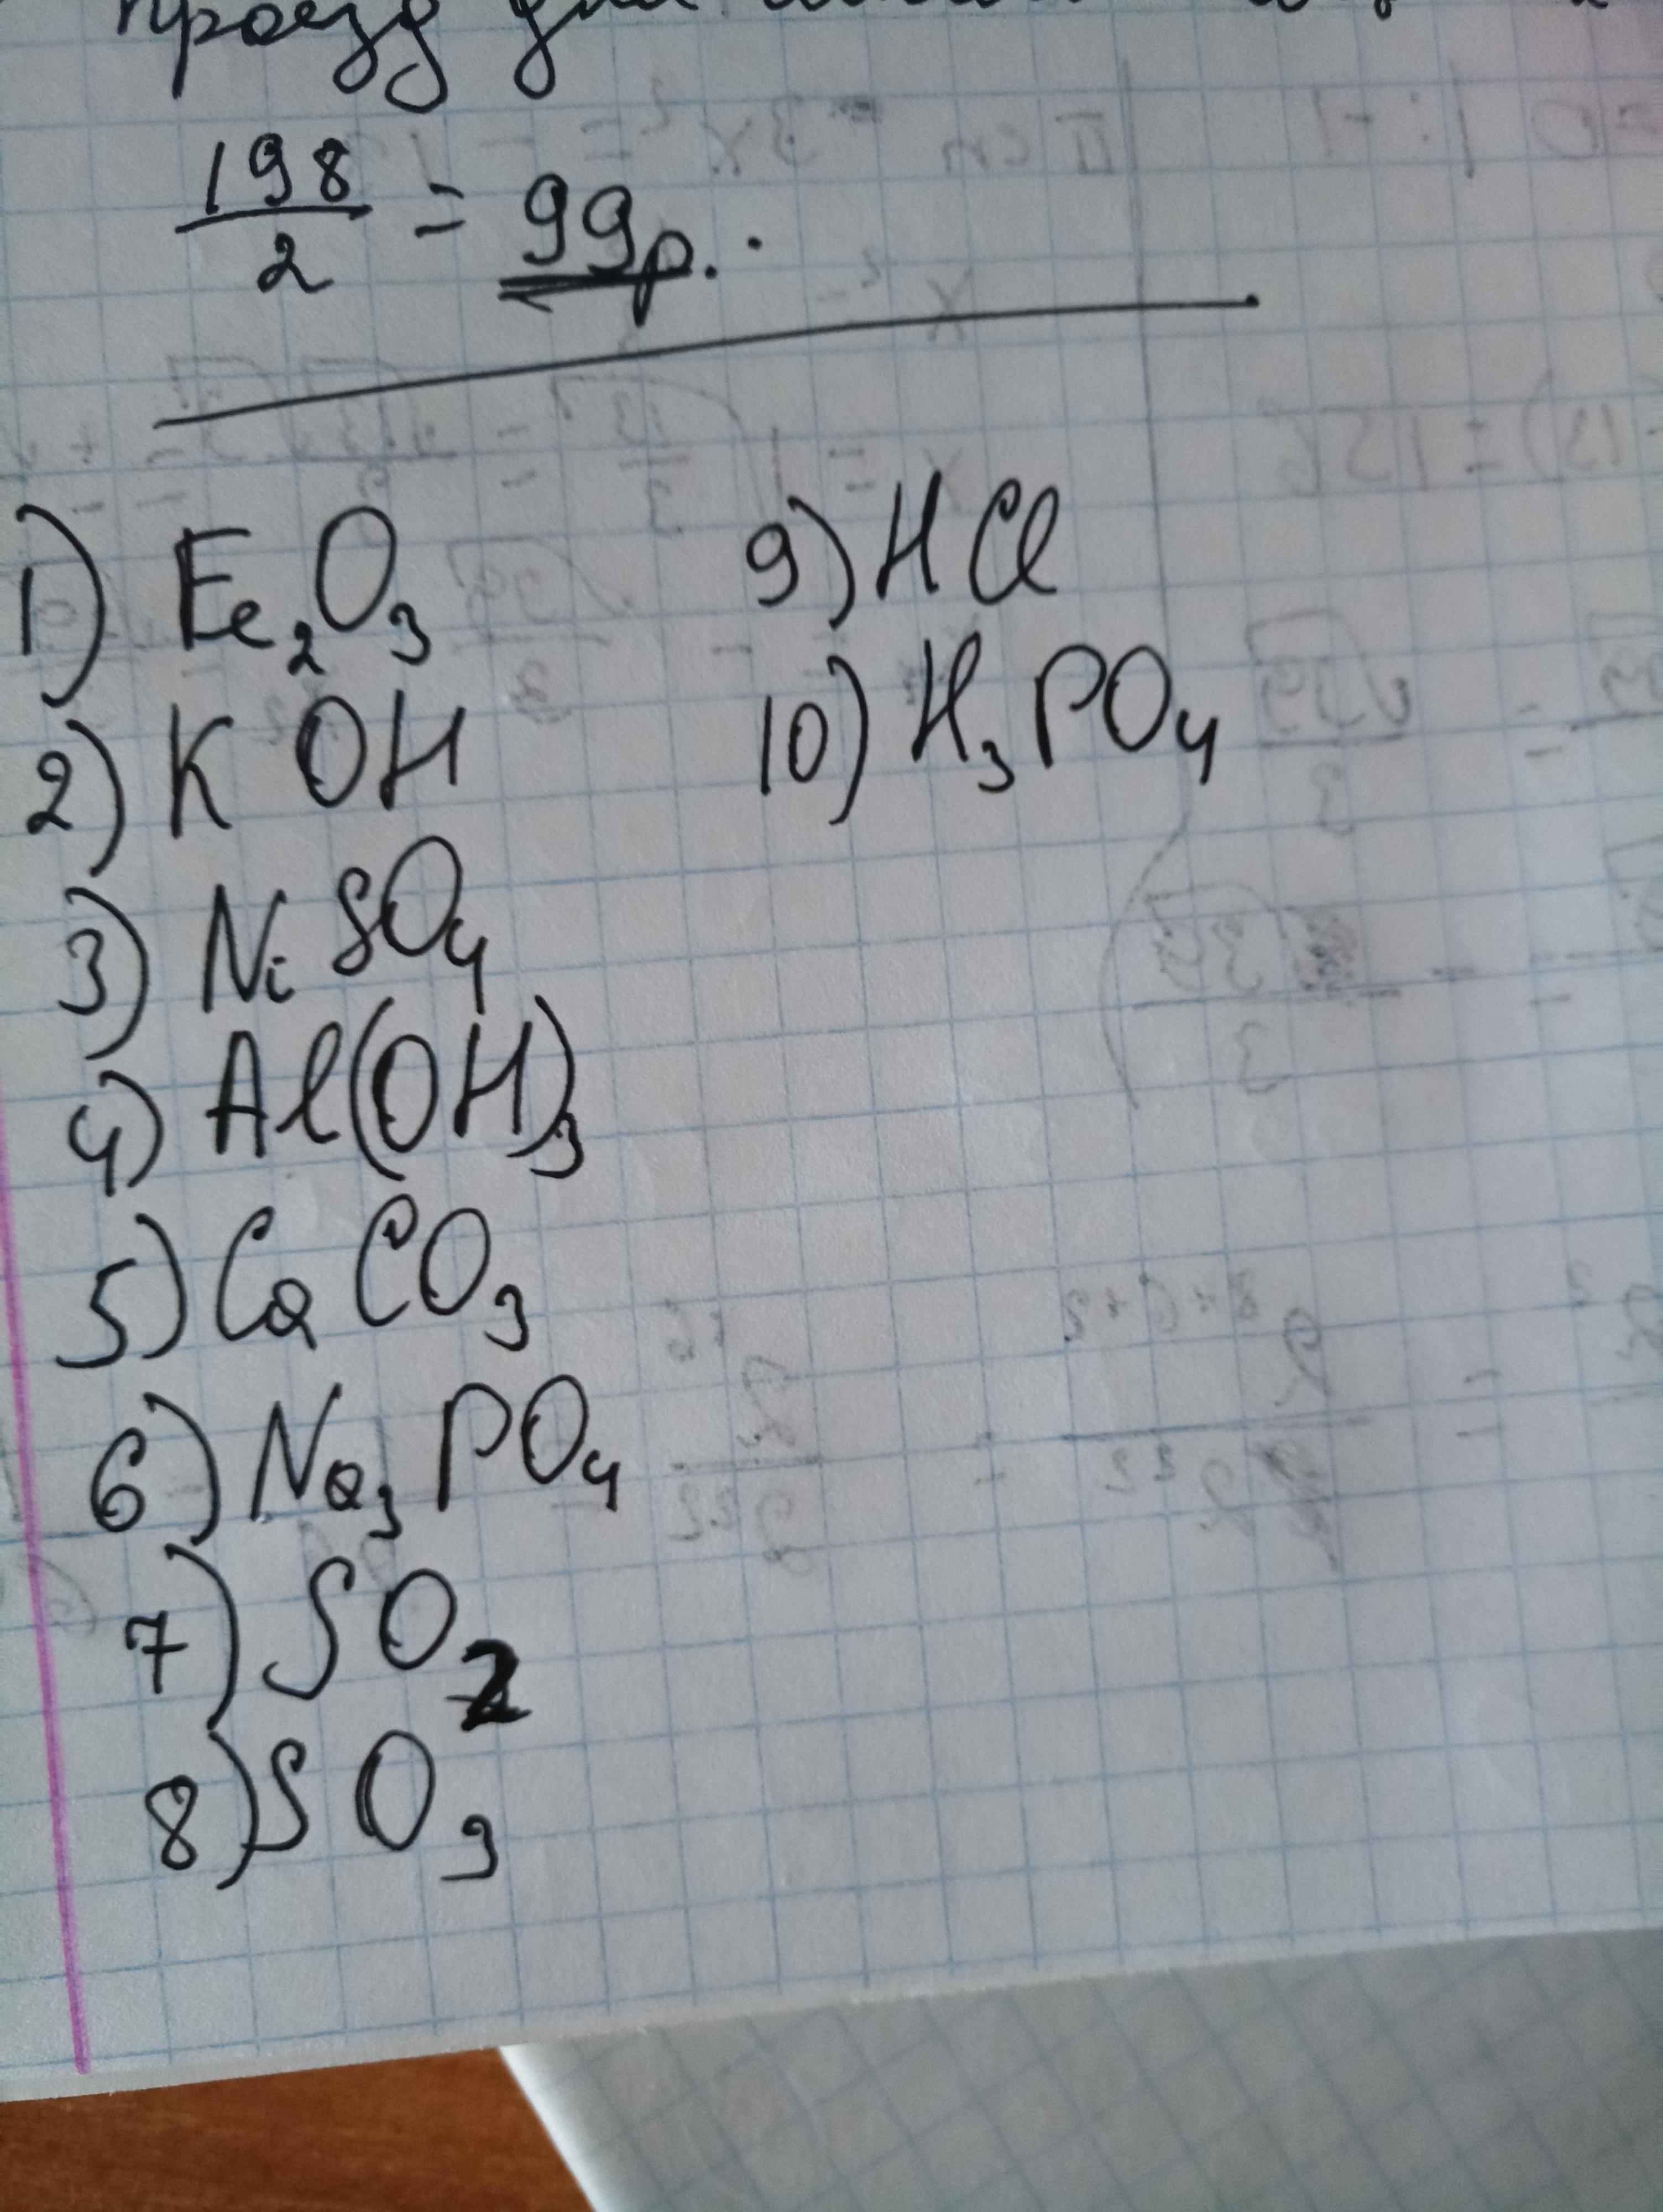 проезд для
198/2 = 99р.
1) Fe₂O₃
2) KOH
3) NiSO₄
4) Al(OH)₃
5) CaCO₃
6) Na₃PO₄
7) SO₂
8) SO₃
9) HCl
10) H₃PO₄